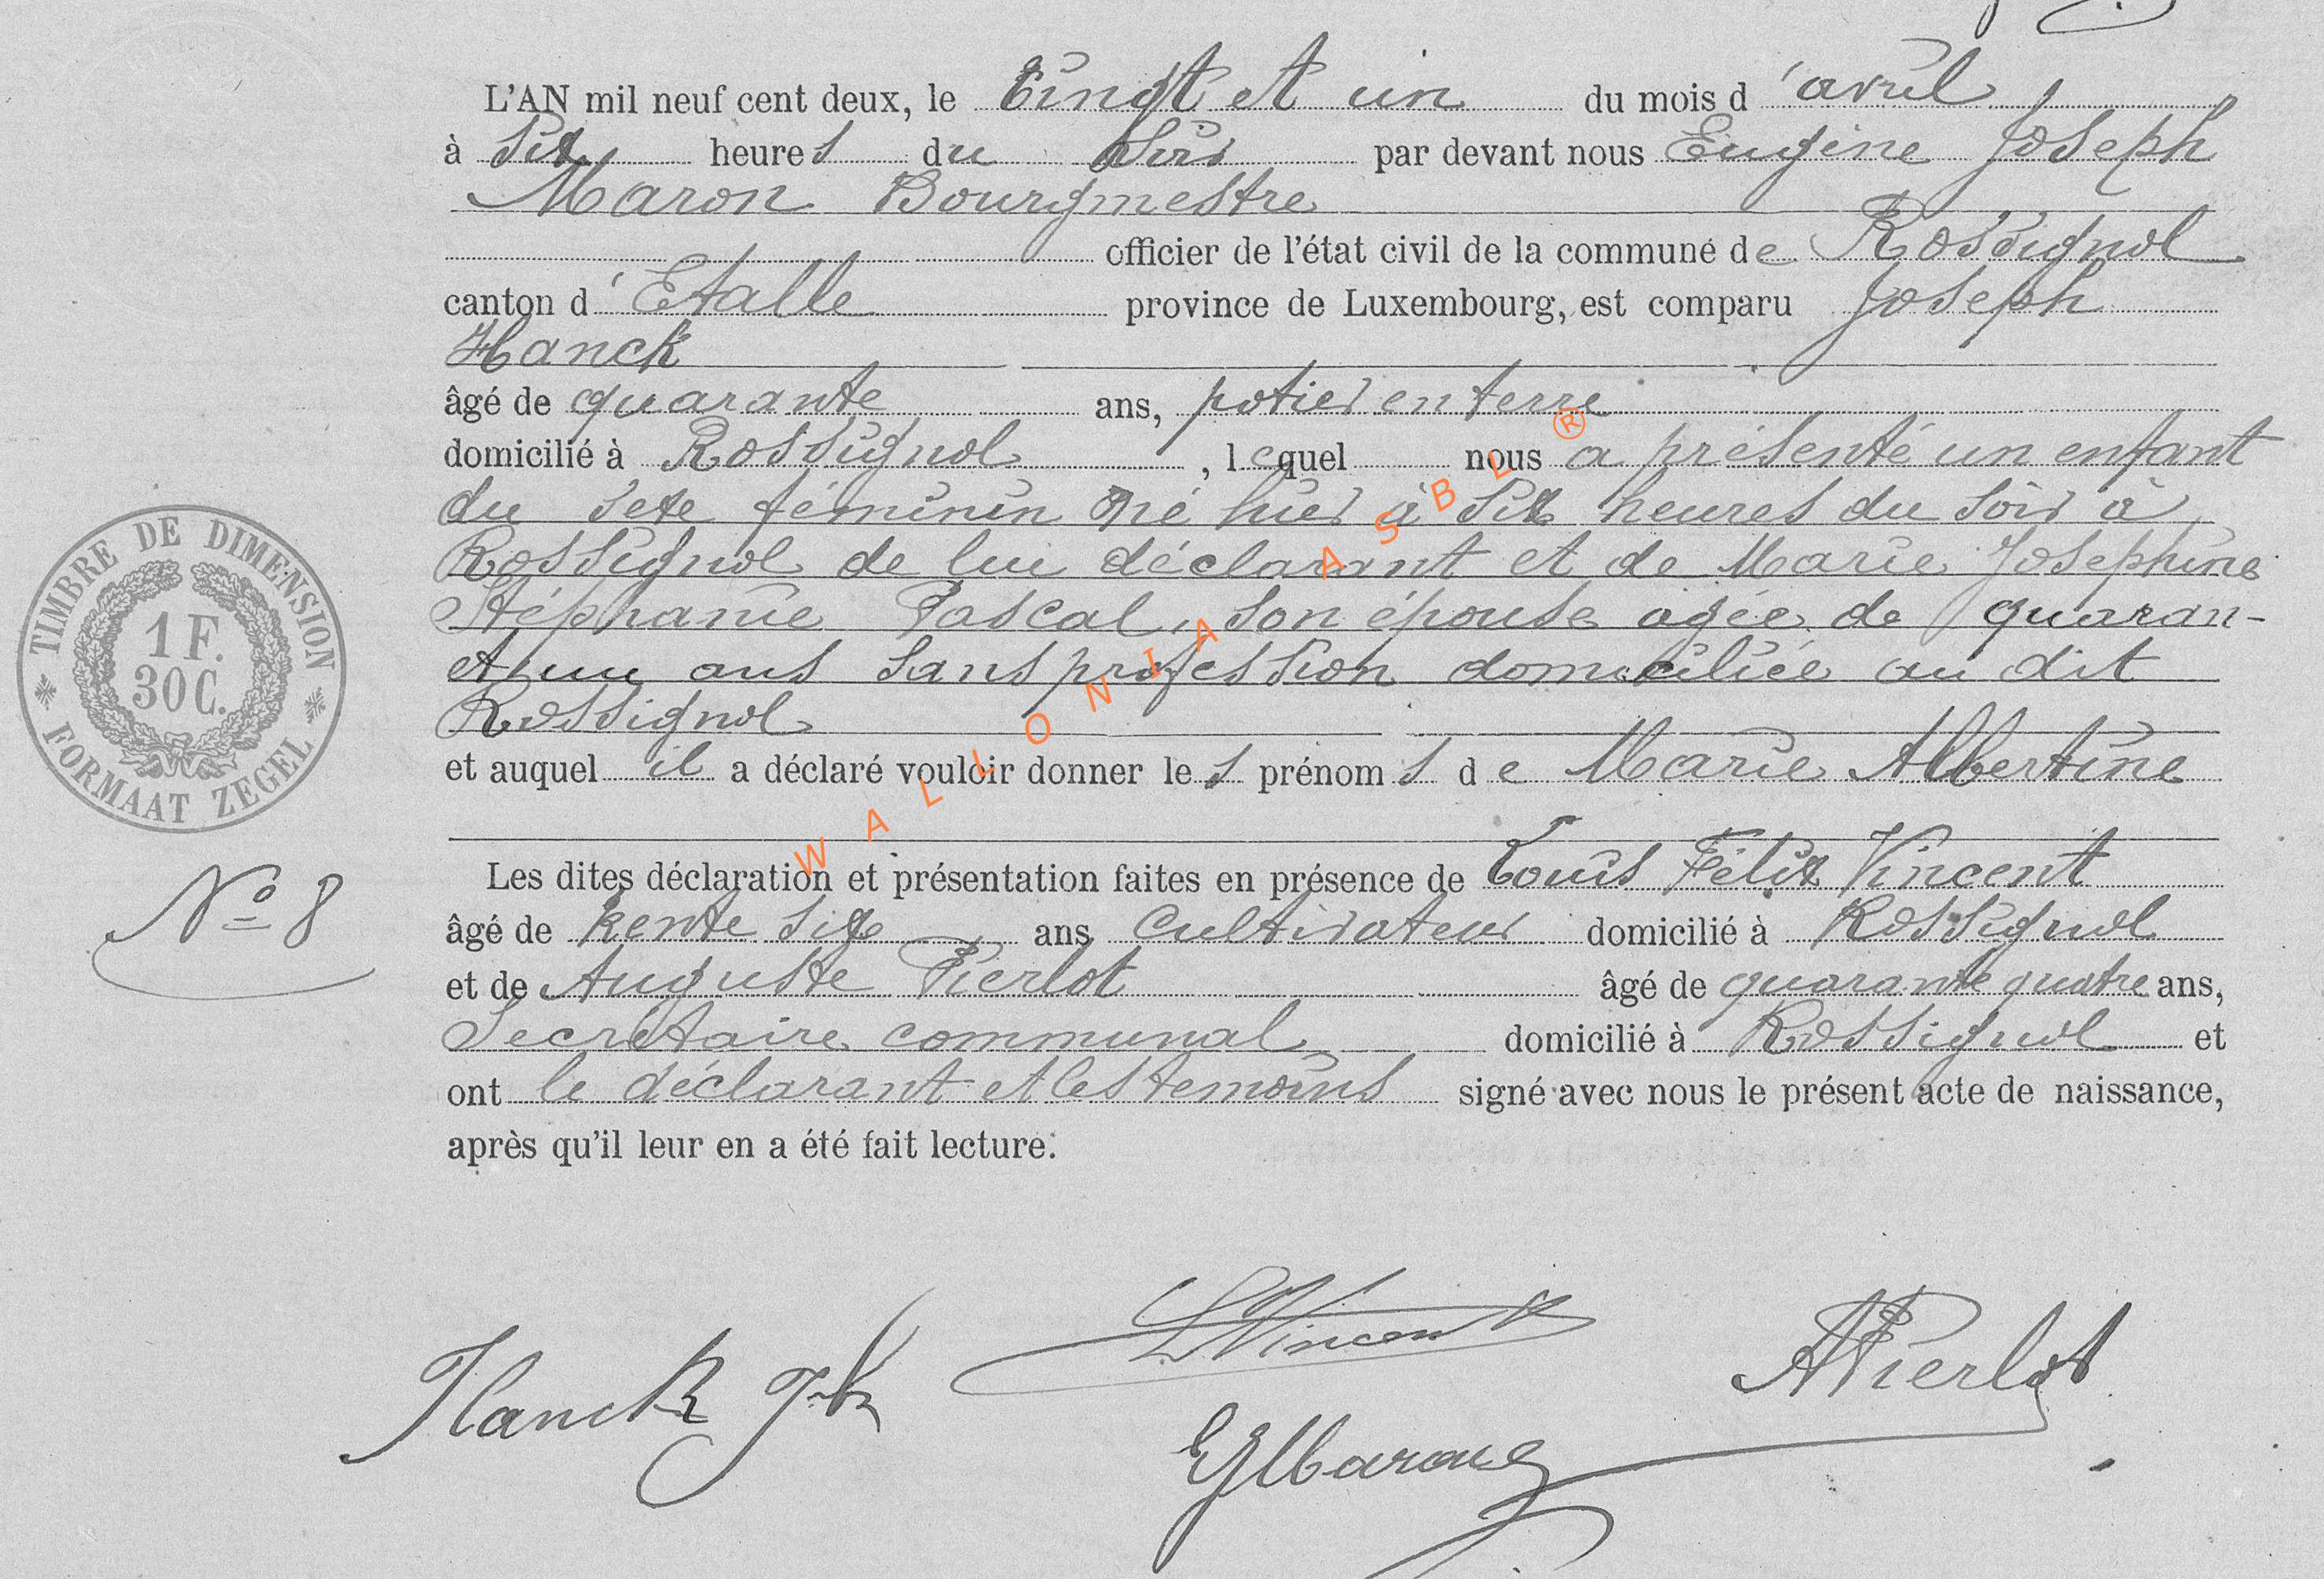 L'AN mil neuf cent deux, le Vingt et un du mois d'avril
à six heures du soir par devant nous Eugène Joseph
Maron Bourgmestre
officier de l'état civil de la commune de Rossignol
canton d'Etalle province de Luxembourg, est comparu Joseph
Hanck
âgé de quarante ans, potier en terre
domicilié à Rossignol, lequel nous a présenté un enfant
du sexe féminin né hier à six heures du soir à
Rossignol de lui déclarant et de Marie Josephine
Stéphanie Pascal, son épouse agée de quaran-
et un ans sans profession domiciliée au dit
Rossignol
et auquel il a déclaré vouloir donner les prénoms de Marie Albertine
Les dites déclaration et présentation faites en présence de Louis Félix Vincent
âgé de trente six ans cultivateur domicilié à Rossignol
et de Auguste Pierlot âgé de quarante quatre ans,
Secrétaire communal domicilié à Rossignol et
ont le déclarant et les temoins signé avec nous le présent acte de naissance,
après qu'il leur en a été fait lecture.
TIMBRE DE DIMENSION
1 F.
30 C.
FORMAAT ZEGEL
No 8
WALLONIA ASBL ®
Hanck Jh
L Vincent
A Pierlot
EJMaron